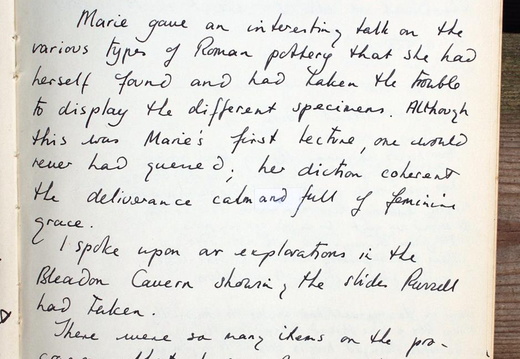 Marie gave an interesting talk on the
various types of Roman pottery that she had
herself found and had taken the trouble
to display the different specimens. Although
this was Marie's first lecture, one would
never had guessed; her diction coherent
the deliverance calm and full of feminine
grace.
I spoke upon our explorations in the
Bleadon Cavern showing the slides Russell
had taken.
There were so many items on the pro-